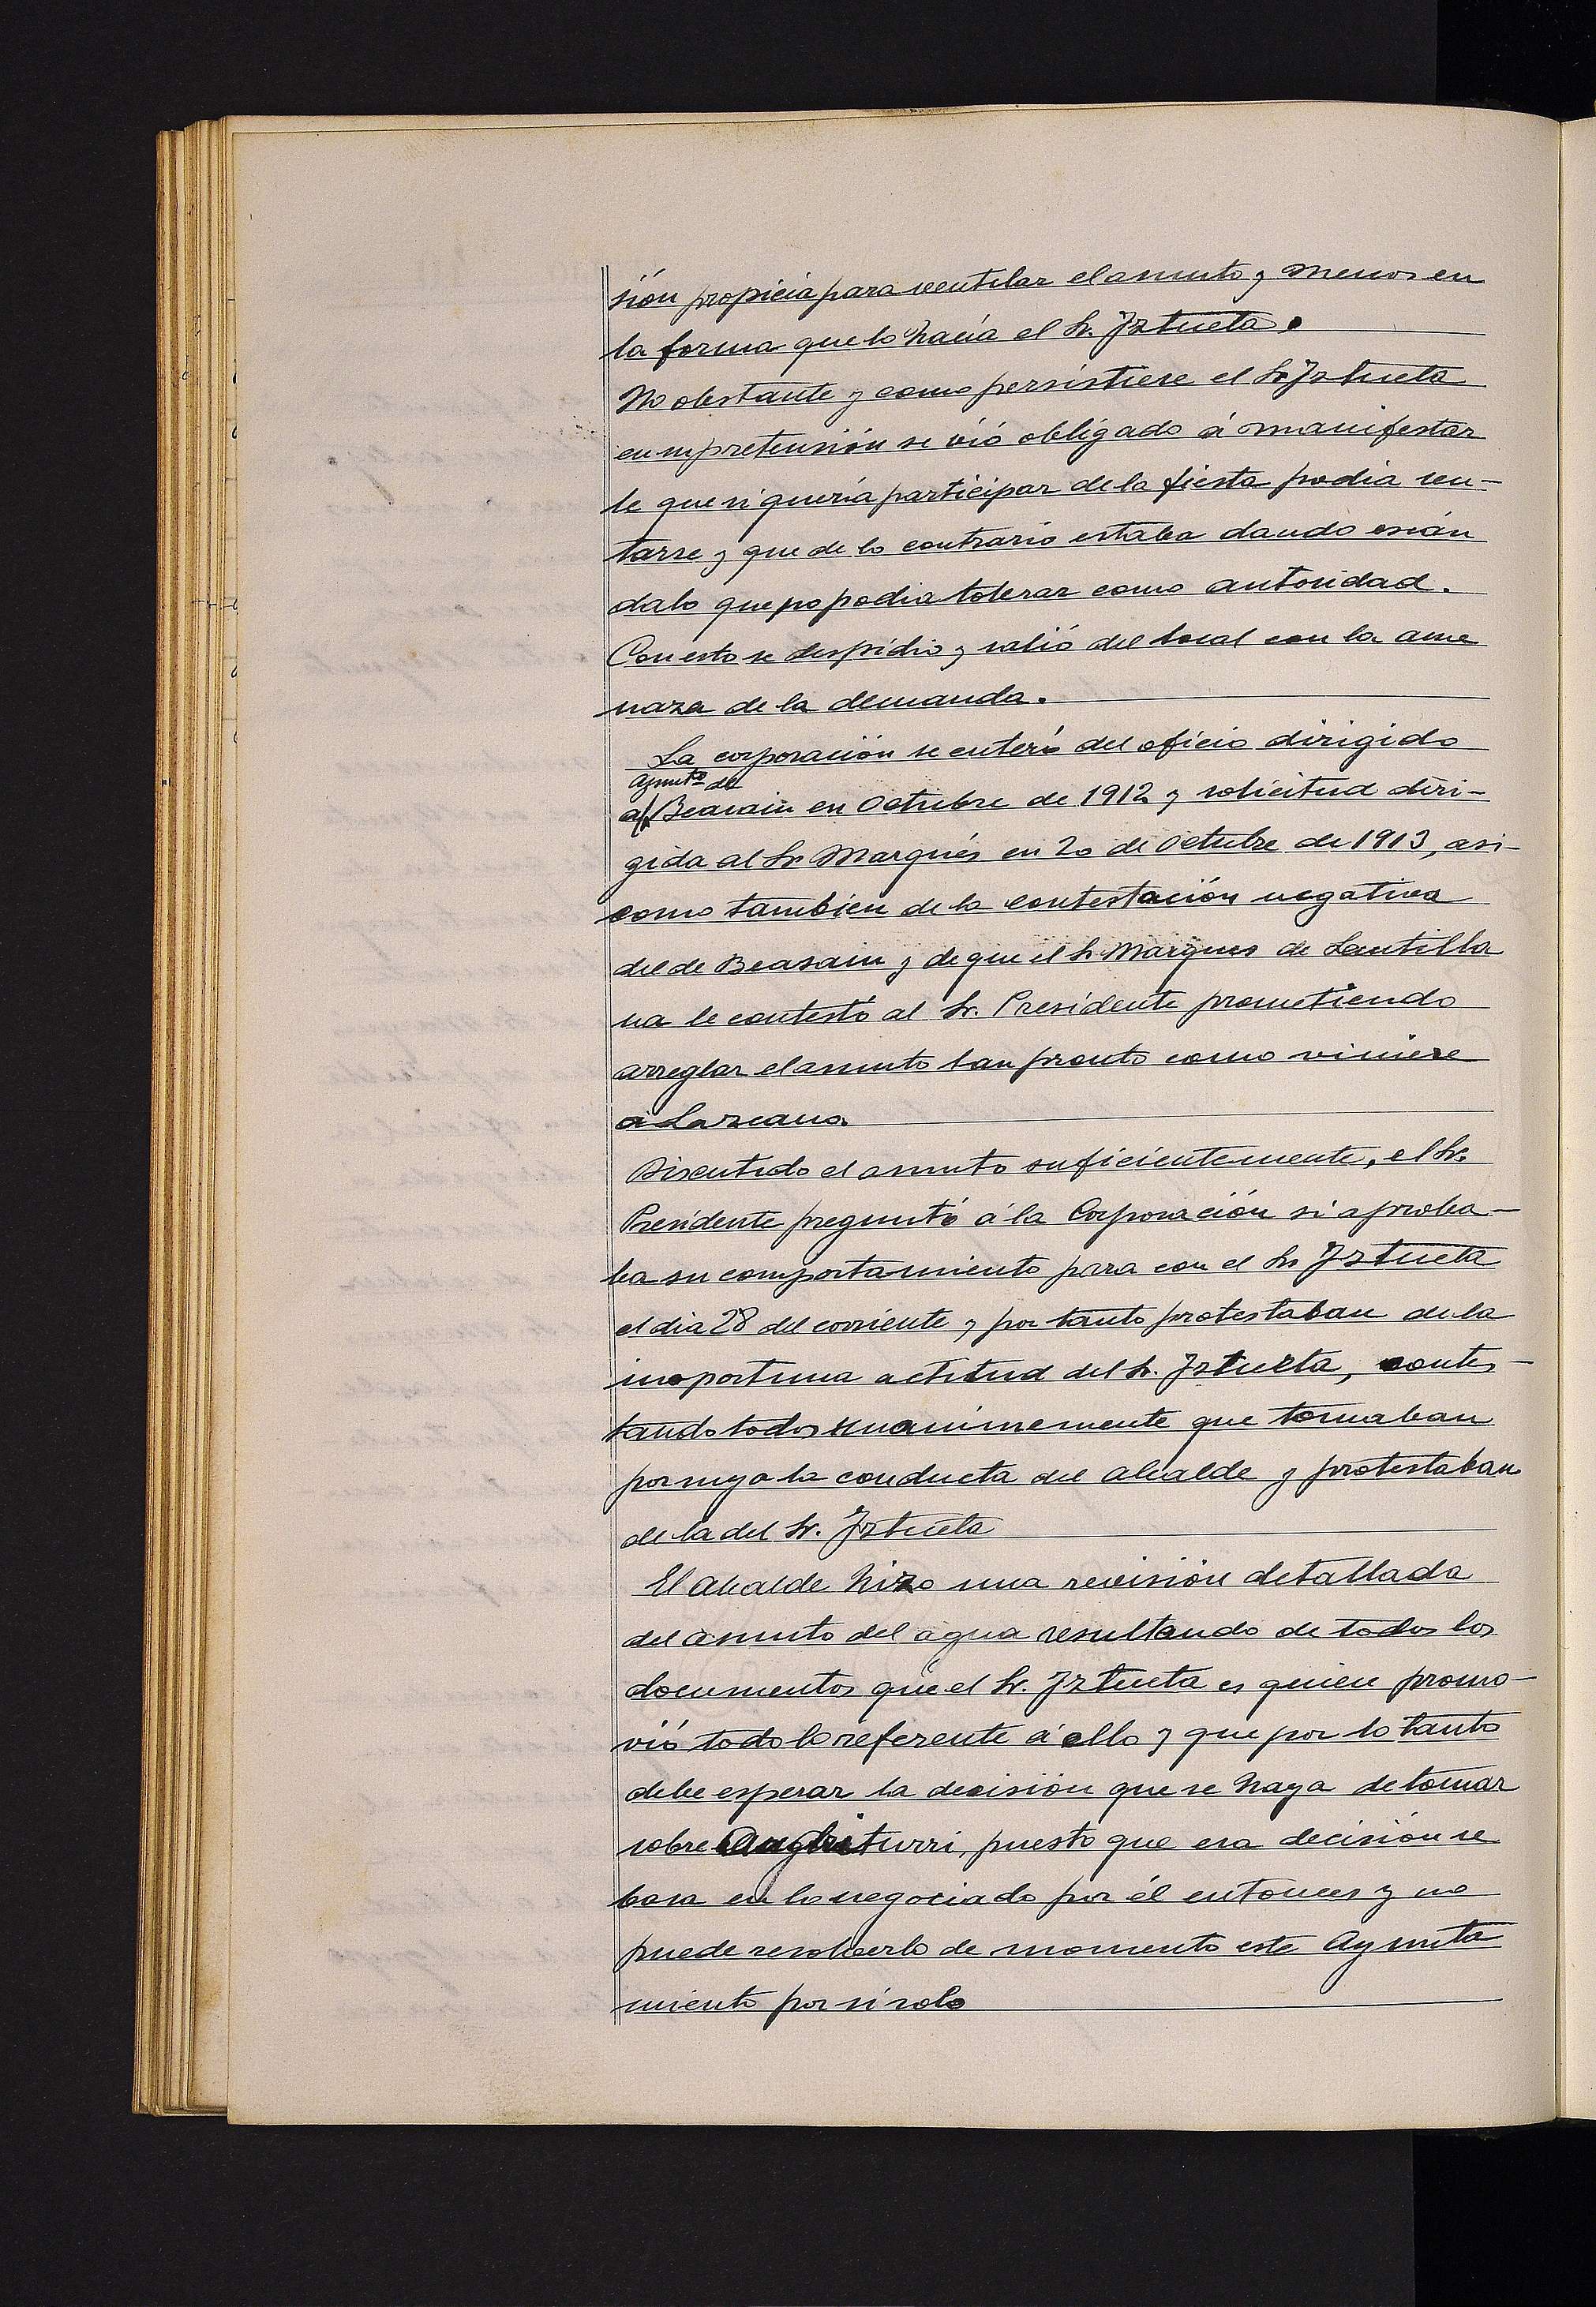 sión propicia para ventilar el asunto y menos en
la forma que lo hacía el Sr. Iztueta.
No obstante y como persistiese el Sr Iztueta
en su pretensión se vió obligado á manifestar
le que si quería participar de la fiesta podia sen-
tarse y que de lo contrario estaba dando escán
dalo que no podia tolerar como autoridad.
Con esto se despidió y salió del local con la ame
naza de la demanda.
La corporación se enteró del oficio dirigido
Ayunto de
al Beasain en Octubre de 1912 y solicitud diri-
gida al Sr Marqués en 20 de Octubre de 1913, asi-
como tambien de la contestación negativa
del de Beasain y de que el Sr Marques de Santilla
na le contestó al Sr. Presidente prometiendo
arreglar el asunto tan pronto como viniese
á Lazcano.
Discutido el asunto suficientemente, el Sr.
Presidente preguntó á la Corporación si aproba-
ba su comportamiento para con el Sr Iztueta
el dia 28 del corriente y por tanto protestaban de la
inoportuna actitud del Sr. Iztueta, contes-
tando todos unanimemente que tomaban
por suya la conducta del alcalde y protestaban
de la del Sr. Iztueta
El Alcalde hizo una revisión detallada
del asunto del agua resultando de todos los
documentos que el Sr. Iztueta es quien promo-
vió todo lo referente á ello y que por lo tanto
debe esperar la decisión que se haya de tomar
sobre puesto que esa decisión se
basa en lo negociado por él entonces y no
puede resolverlo de momento este Ayunta
miento por si solo